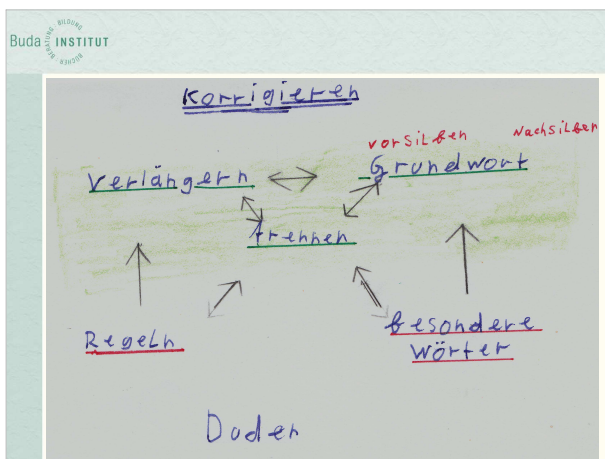 Buda INSTITUT
BERATUNG BILDUNG BÜCHER
Korrigieren
vorsilben Nachsilben
Verlängern Grundwort
trennen
Regeln besondere
wörter
Duden